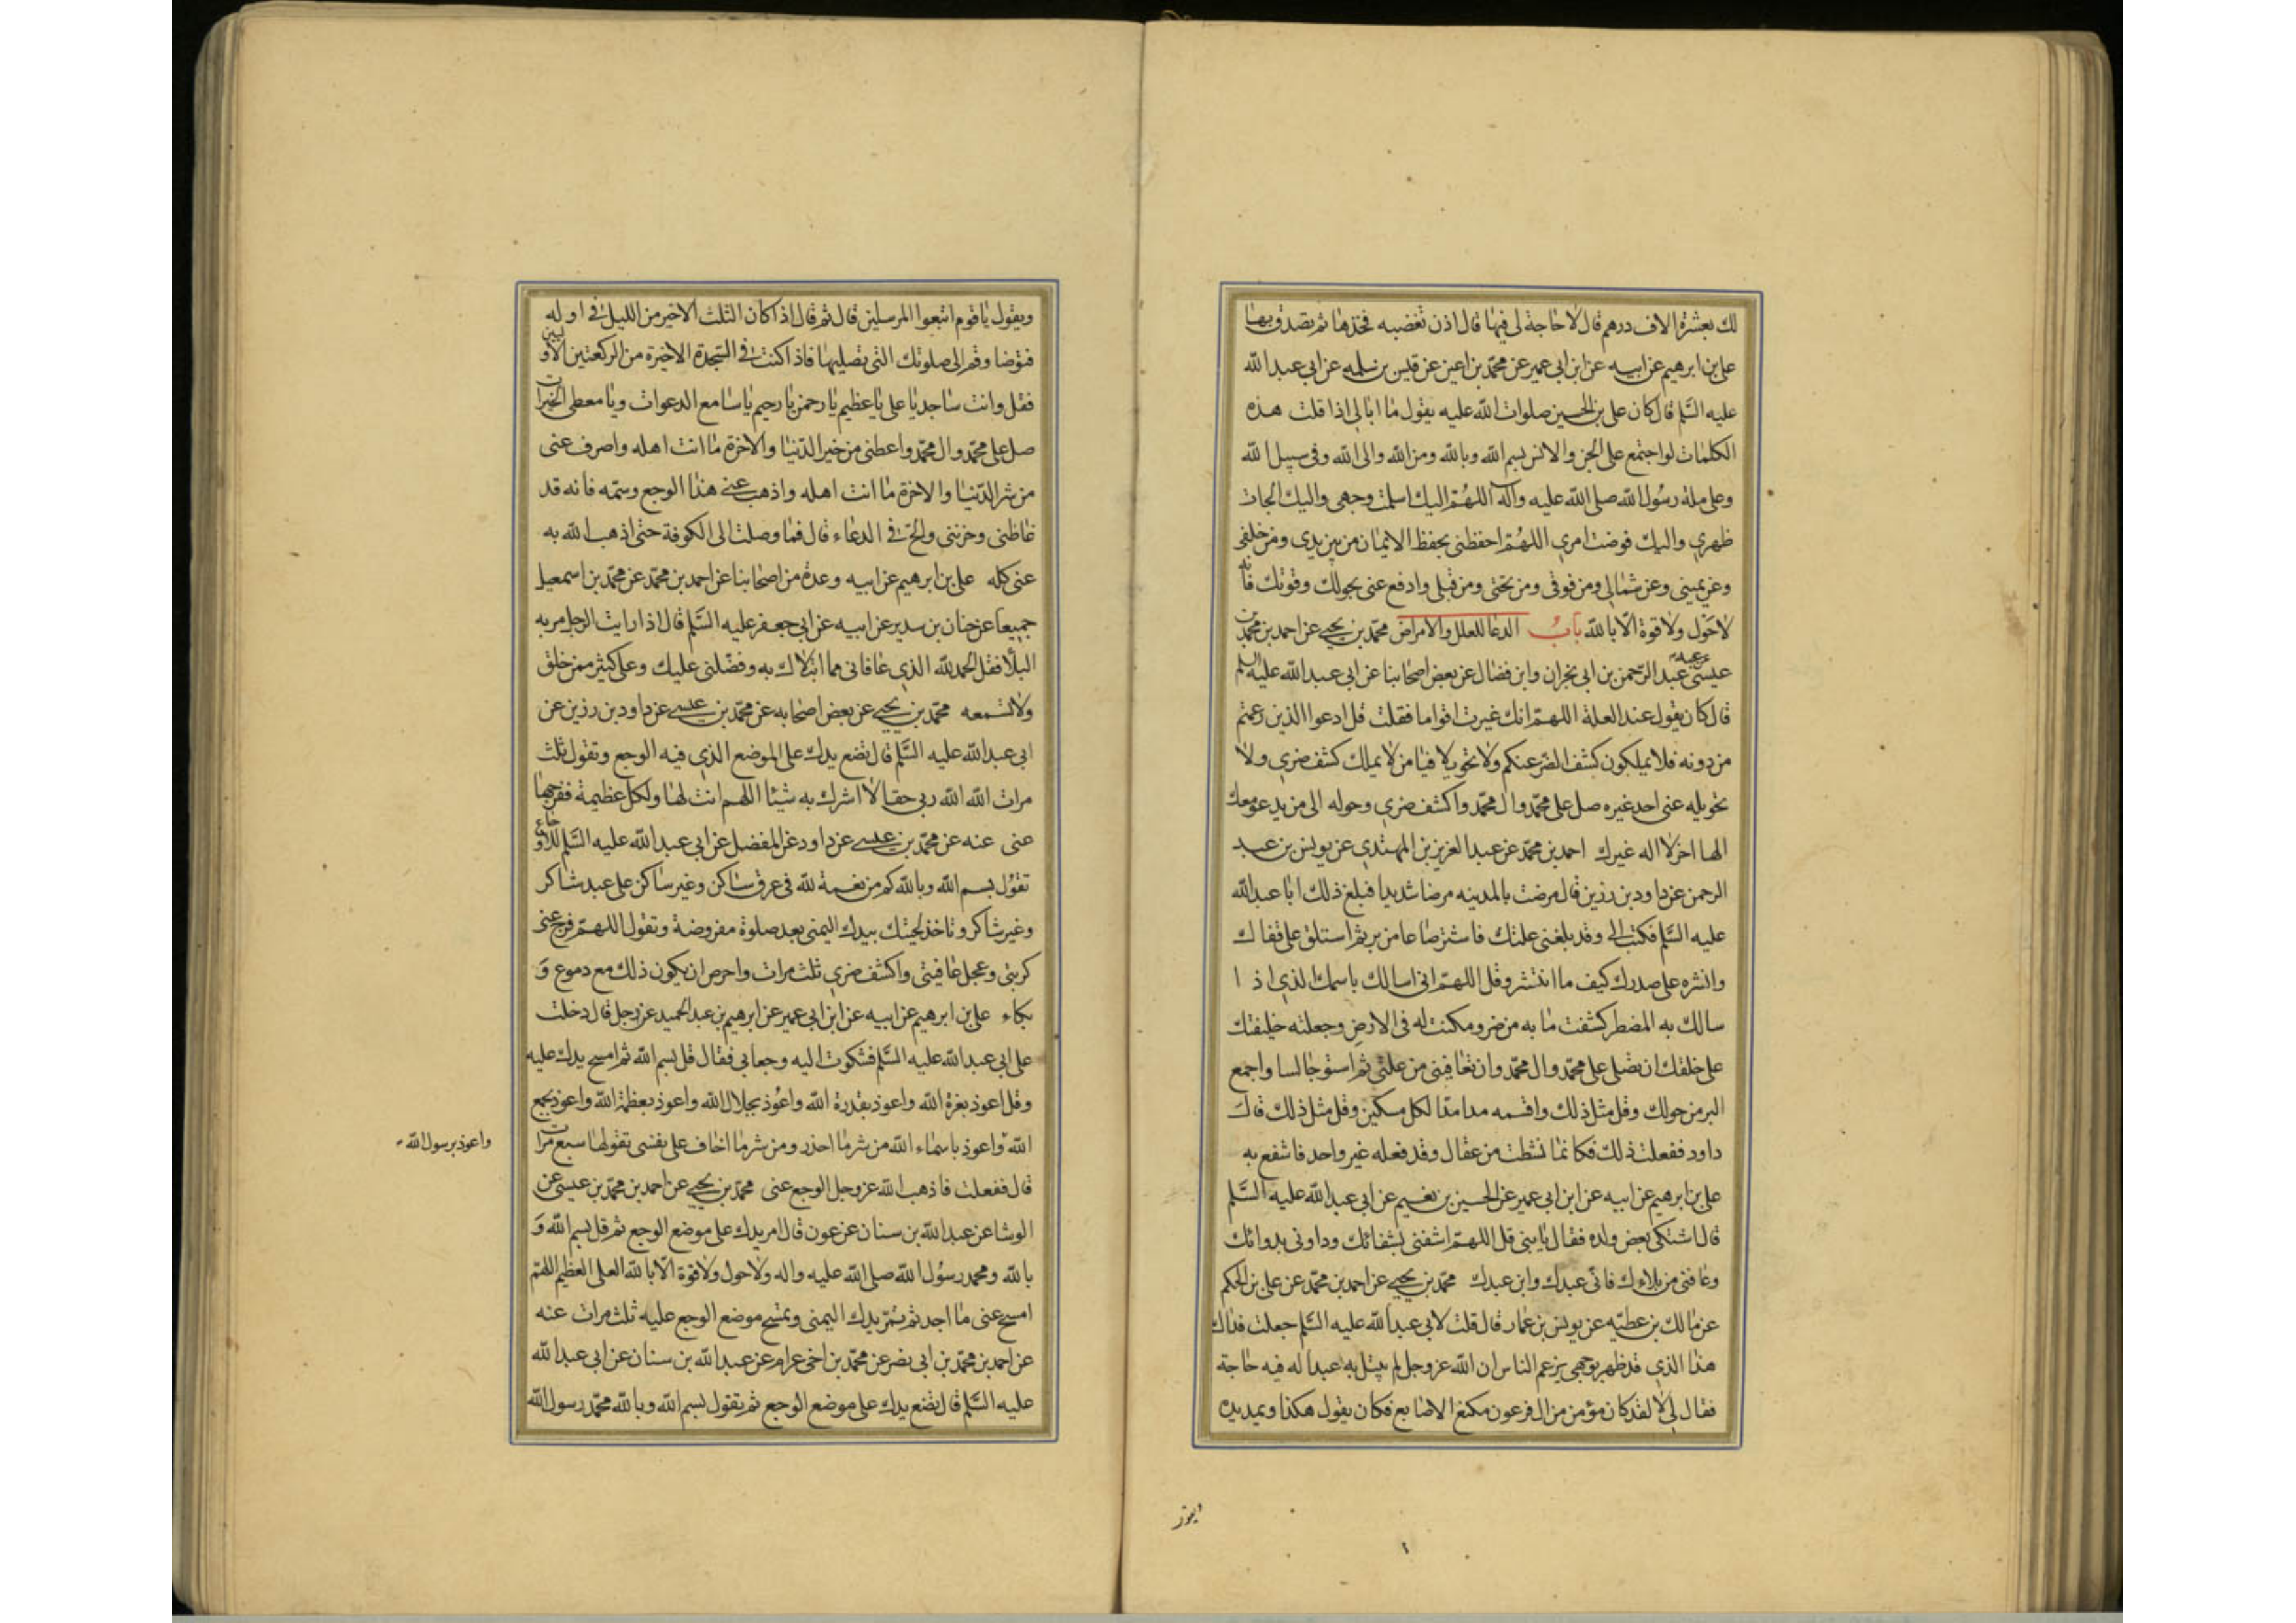 لك بعشرة الاف درهم قال لا حاجة لى فيها قال اذن تغضبه فخذها ثم تصدق بها
على بن ابرهيم عن ابيه عن ابن ابى عمير عن محمد بن اعين عن قيس بن سلمه عن ابى عبد الله
عليه السلم قال كان على بن الحسين صلوات الله عليه يقول ما ابالى اذا قلت هذه
الكلمات لو اجتمع على الجن والانس بسم الله وبالله ومن الله والى الله وفى سبيل الله
وعلى ملة رسول الله صلى الله عليه وآله اللهم اليك اسلمت وجهى واليك الجات
ظهرى واليك فوضت امرى اللهم احفظنى بحفظ الايمان من بين يدى ومن خلفى
وعن يمينى وعن شمالى ومن فوقى ومن تحتى ومن قبلى وادفع عنى بحولك وقوتك فانه
لا حول ولا قوة الا بالله باب الدعا للعلل والامراض محمد بن يحيى عن احمد بن محمد بن
عيسى عن عبد الرحمن بن ابى نجران وابن فضال عن بعض اصحابنا عن ابى عبد الله عليه السلم
قال كان يقول عند العلة اللهم انك غيرت اقواما فقلت قل ادعوا الذين زعمتم
من دونه فلا يملكون كشف الضر عنكم ولا تحويلا فيا من لا يملك كشف ضرى ولا
تحويله عنى احد غيره صل على محمد وال محمد واكشف ضرى وحوله الى من يدعو معك
الها اخر لا اله غيرك احمد بن محمد عن عبد العزيز بن المهتدى عن يونس بن عبد
الرحمن عن داود بن رزين قال مرضت بالمدينه مرضا شديدا فبلغ ذلك ابا عبد الله
عليه السلم فكتب الى وقد بلغنى علتك فاشتر صاعا من بر ثم استلق على قفاك
وانثره على صدرك كيف ما انتثر وقل اللهم انى اسالك باسمك الذى اذا
سالك به المضطر كشفت ما به من ضر ومكنت له فى الارض وجعلته خليفتك
على خلقك ان تصلى على محمد وال محمد وان تعافينى من علتى ثم استو جالسا واجمع
البر من حولك وقل مثل ذلك واقسمه مدا مدا لكل مسكين وقل مثل ذلك قال
داود ففعلت ذلك فكانما نشطت من عقال وقد فعله غير واحد فانتفع به
على بن ابرهيم عن ابيه عن ابن ابى عمير عن الحسين بن نعيم عن ابى عبد الله عليه السلم
قال اشتكى بعض ولده فقال يا بنى قل اللهم اشفنى بشفائك وداونى بدوائك
وعافنى من بلاءك فانى عبدك وابن عبدك محمد بن يحيى عن احمد بن محمد عن على بن الحكم
عن مالك بن عطيه عن يونس بن عمار قال قلت لابى عبد الله عليه السلم جعلت فداك
هذا الذى قد ظهر بوجهى يزعم الناس ان الله عز وجل لم يبتل به عبدا له فيه حاجة
فقال لى لا لقد كان مؤمن من ال فرعون مكنع الاصابع فكان يقول هكذا ويمد يده
ويقول يا قوم اتبعوا المرسلين قال ثم قال اذا كان الثلث الاخير من الليل فى اوله
فتوضا وقم الى صلوتك التى تصليها فاذا كنت فى السجدة الاخيرة من الركعتين الاوليين
فقل وانت ساجد يا على يا عظيم يا رحمن يا رحيم يا سامع الدعوات ويا معطى الخيرات
صل على محمد وال محمد واعطنى من خير الدنيا والاخرة ما انت اهله واصرف عنى
من شر الدنيا والاخرة ما انت اهله واذهب عنى هذا الوجع وسمه فانه قد
غاظنى وحزننى والح فى الدعاء قال فما وصلت الى الكوفة حتى اذهب الله به
عنى كله على بن ابرهيم عن ابيه وعدة من اصحابنا عن احمد بن محمد عن محمد بن اسمعيل
جميعا عن حنان بن سدير عن ابيه عن ابى جعفر عليه السلم قال اذا رايت الرجل مر به
البلاء فقل الحمد لله الذى عافانى مما ابتلاك به وفضلنى عليك وعلى كثير ممن خلق
ولا تسمعه محمد بن يحيى عن بعض اصحابه عن محمد بن عيسى عن داود بن رزين عن
ابى عبد الله عليه السلم قال تضع يدك على الموضع الذى فيه الوجع وتقول ثلث
مرات الله الله ربى حقا لا اشرك به شيئا اللهم انت لها ولكل عظيمة ففرجها
عنى عنه عن محمد بن عيسى عن داود عن المفضل عن ابى عبد الله عليه السلم للاوجاع
تقول بسم الله وبالله كم من نعمة لله فى عرق ساكن وغير ساكن على عبد شاكر
وغير شاكر وتاخذ لحيتك بيدك اليمنى بعد صلوة مفروضة وتقول اللهم فرج عنى
كربتى وعجل عافيتى واكشف ضرى ثلث مرات واحرص ان يكون ذلك مع دموع و
بكاء على بن ابرهيم عن ابيه عن ابن ابى عمير عن ابرهيم بن عبد الحميد عن رجل قال دخلت
على ابى عبد الله عليه السلم فشكوت اليه وجعا بى فقال قل بسم الله ثم امسح يدك عليه
وقل اعوذ بعزة الله واعوذ بقدرة الله واعوذ بجلال الله واعوذ بعظمة الله واعوذ بجمع
الله واعوذ باسماء الله من شر ما احذر ومن شر ما اخاف على نفسى تقولها سبع مرات
واعوذ برسول الله
قال ففعلت فاذهب الله عز وجل الوجع عنى محمد بن يحيى عن احمد بن محمد بن عيسى عن
الوشا عن عبد الله بن سنان عن عون قال امر يدك على موضع الوجع ثم قل بسم الله و
بالله ومحمد رسول الله صلى الله عليه واله ولا حول ولا قوة الا بالله العلى العظيم اللهم
امسح عنى ما اجد ثم تمر يدك اليمنى وتمسح موضع الوجع عليه ثلث مرات عنه
عن احمد بن محمد بن ابى نصر عن محمد بن اخى عرام عن عبد الله بن سنان عن ابى عبد الله
عليه السلم قال تضع يدك على موضع الوجع ثم تقول بسم الله وبالله محمد رسول الله